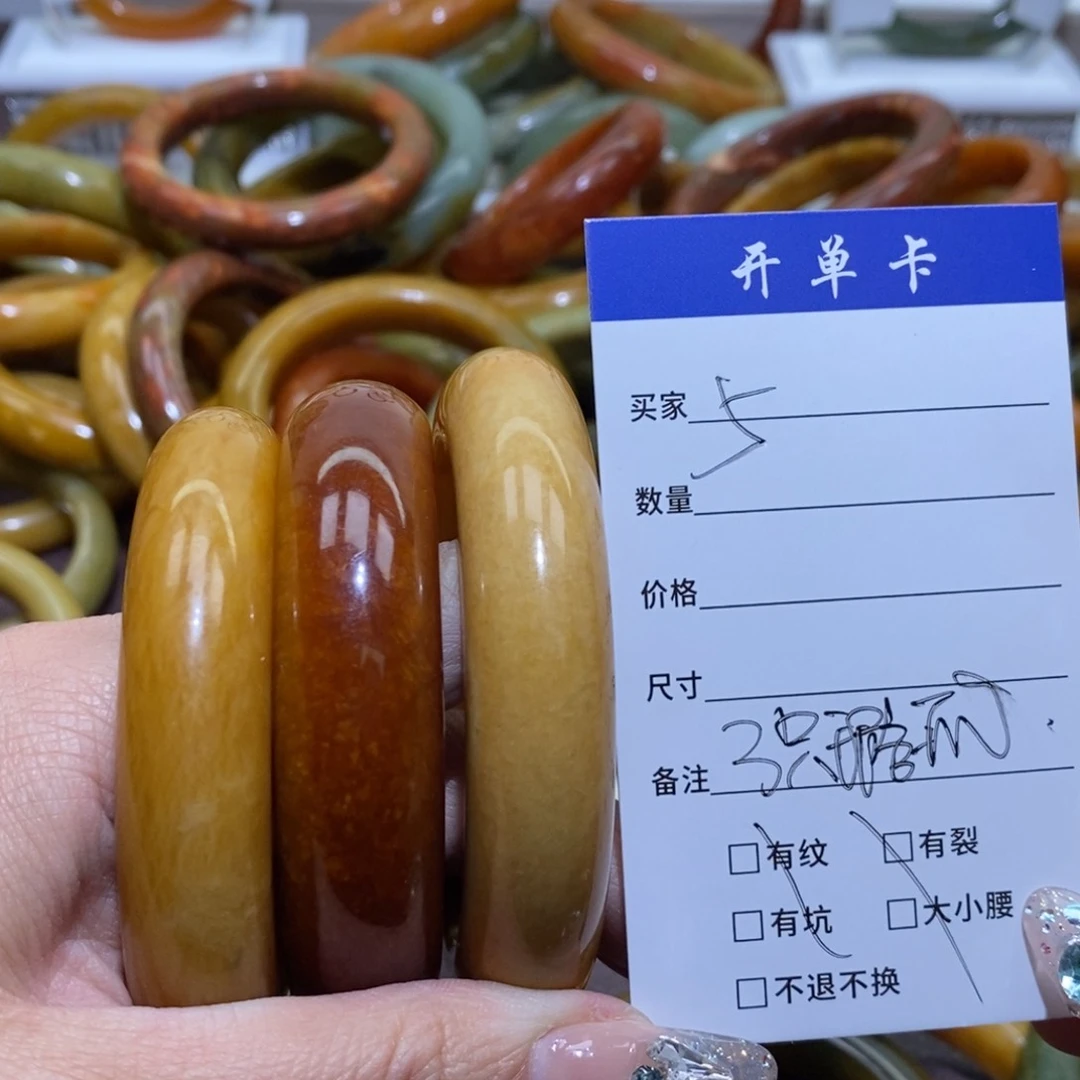 开单卡
买家
数量
价格
尺寸
备注 3只
有纹 有裂
有坑 大小腰
不退不换